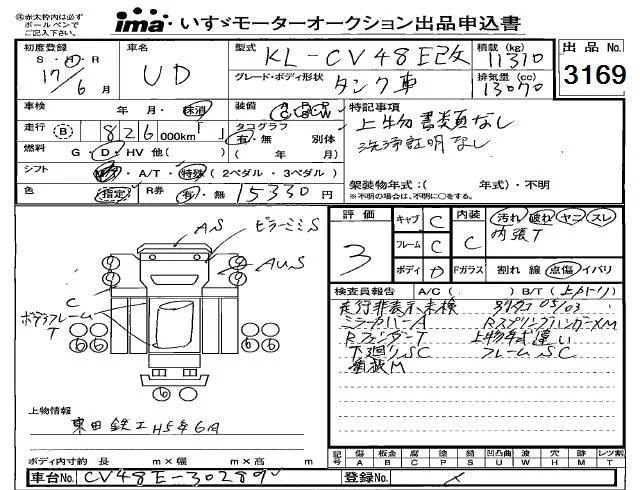 ㊟赤太枠内は必ず
ボールペンで
ご記入下さい。
ima いすゞモーターオークション出品申込書
初度登録
S・H・R
17/6月
車名
UD
型式
KL-CV48E改
グレード・ボディ形状
タンク車
積載(kg)
11310
排気量(cc)
13070
出品No.
3169
車検 年・月・抹消
装備 A/C P/S P/W
走行 B 826 000km
タコグラフ 有・無 別体
燃料 G・D・HV 他( )
( 年/ 月)
シフト MT・A/T・特殊(2ペダル・3ペダル)
色 指定
R券 有・無 15330円
特記事項
上物書類なし
洗浄証明なし
架装物年式:( 年式)・不明
※不明の場合は、不明に○をする。
評価
3
キャブ C
フレーム C
ボディ
内装 C
Fガラス
汚れ 破れ ヤニ スレ
内張T
割れ 線 点傷 イバリ
AS
ピラーミミS
AUS
C
ボディフレーム
T
6 6 6 6
6
検査員報告 A/C( ) B/T(上メトリ)
走行非表示未検
05/03
ミラーカバーA
RスプリングハンガーXM
RフェンダーT
上物年式違い
下廻りSC
フレームSC
看板M
上物情報
東田鉄工 H5年6月
ボディ内寸約 長 m×幅 m×高 m
記号 傷A 板金B 腐C 塗P 錆S 凹凸曲U 波W 穴H 跡M レツ割T
車台No. CV48E-30289
登録No.